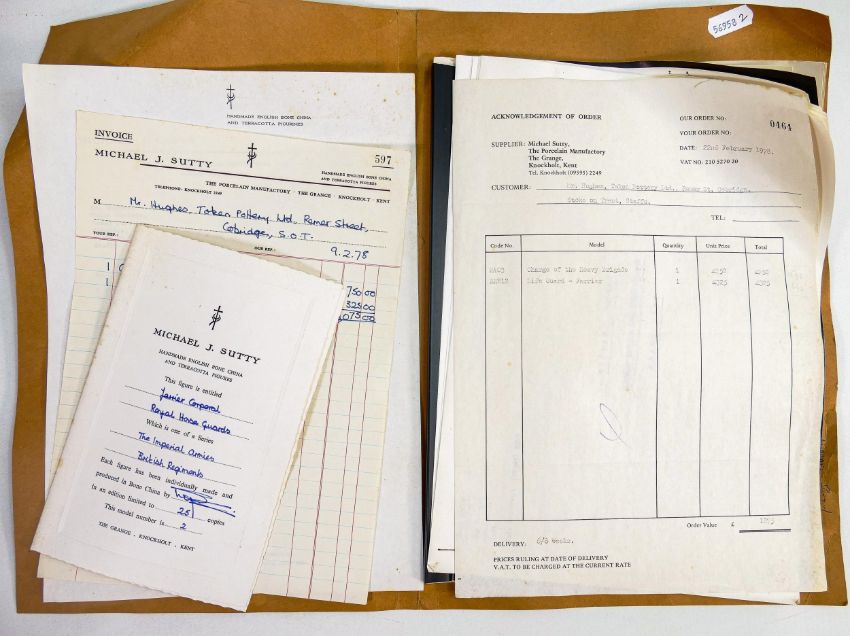 56958 2
HANDMADE ENGLISH BONE CHINA
AND TERRACOTTA FIGURINES
INVOICE
597
MICHAEL J. SUTTY
HANDMADE ENGLISH BONE CHINA
AND TERRACOTTA FIGURINES
THE PORCELAIN MANUFACTORY · THE GRANGE · KNOCKHOLT · KENT
TELEPHONE: KNOCKHOLT 2249
M Mr. Hughes, Token Pottery Ltd, Remer Street,
Cobridge, S.O.T.
YOUR REF.:
OUR REF.:
9.2.78
1
750 00
1
325 00
1075 00
MICHAEL J. SUTTY
HANDMADE ENGLISH BONE CHINA
AND TERRACOTTA FIGURES
This figure is entitled
Farrier Corporal
Royal Horse Guards
Which is one of a Series
The Imperial Armies
British Regiments
Each figure has been individually made and
produced in Bone China by
in an edition limited to 25 copies
This model number is 2
THE GRANGE · KNOCKHOLT · KENT
ACKNOWLEDGEMENT OF ORDER
OUR ORDER NO: 0464
YOUR ORDER NO:
SUPPLIER: Michael Sutty,
The Porcelain Manufactory
The Grange,
Knockholt, Kent
Tel. Knockholt (0959) 2249
DATE: 22nd February 1978.
VAT NO: 210 5270 20
CUSTOMER: Mr. Hughes, Token Pottery Ltd, Remer St. Cobridge,
Stoke on Trent, Staffs.
TEL:
Code No. Model Quantity Unit Price Total
Charge of the Heavy Brigade 1 £750 £750
Life Guard - Farrier 1 £325 £325
Order Value £ 1075
DELIVERY: 6/8 weeks.
PRICES RULING AT DATE OF DELIVERY
V.A.T. TO BE CHARGED AT THE CURRENT RATE